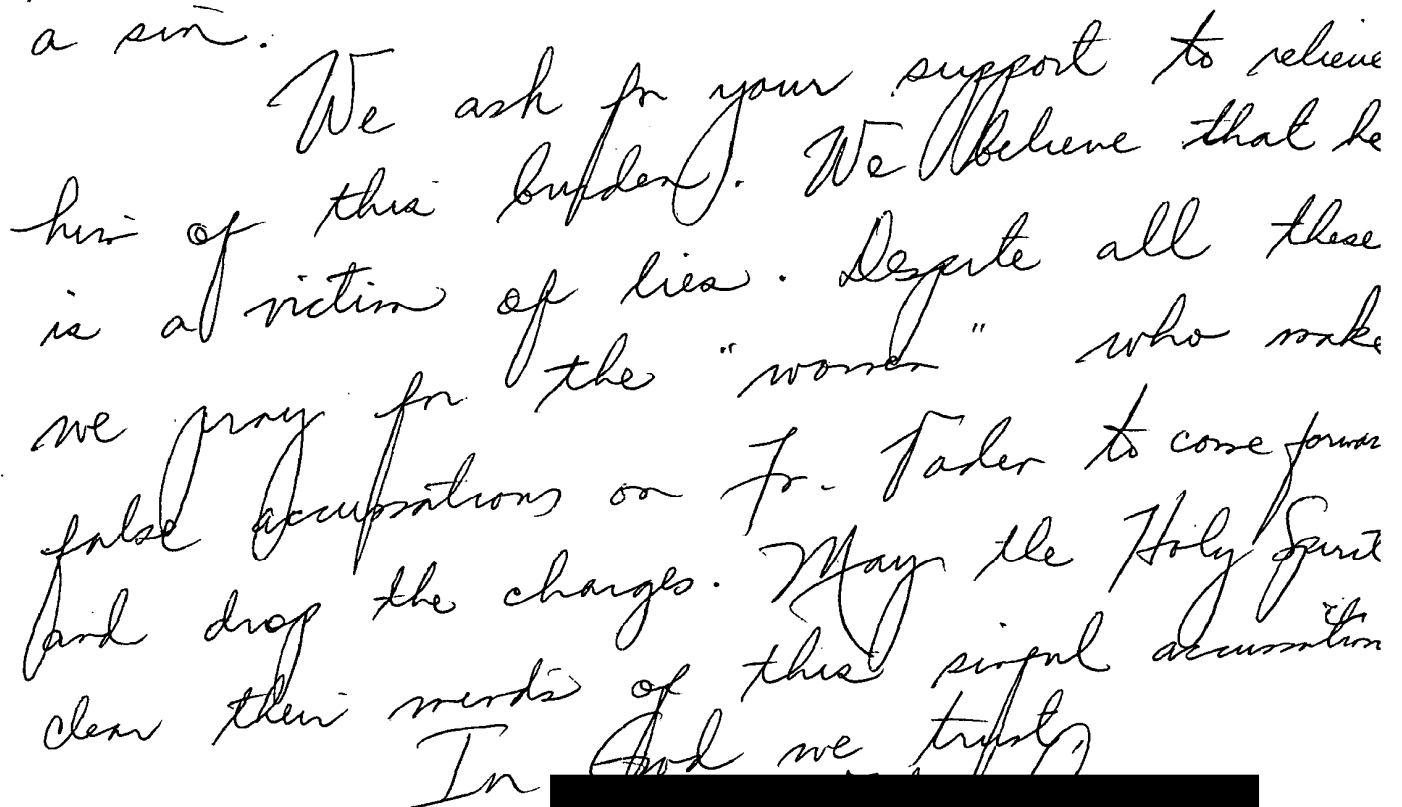 a sin.
We ask for your support to relieve
him of this burden. We believe that he
is a victim of lies. Despite all these
we pray for the "women" who make
false accusations on Fr. Vader to come forwar
and drop the charges. May the Holy Spirit
clear their minds of this sinful accusation
In God we trust,